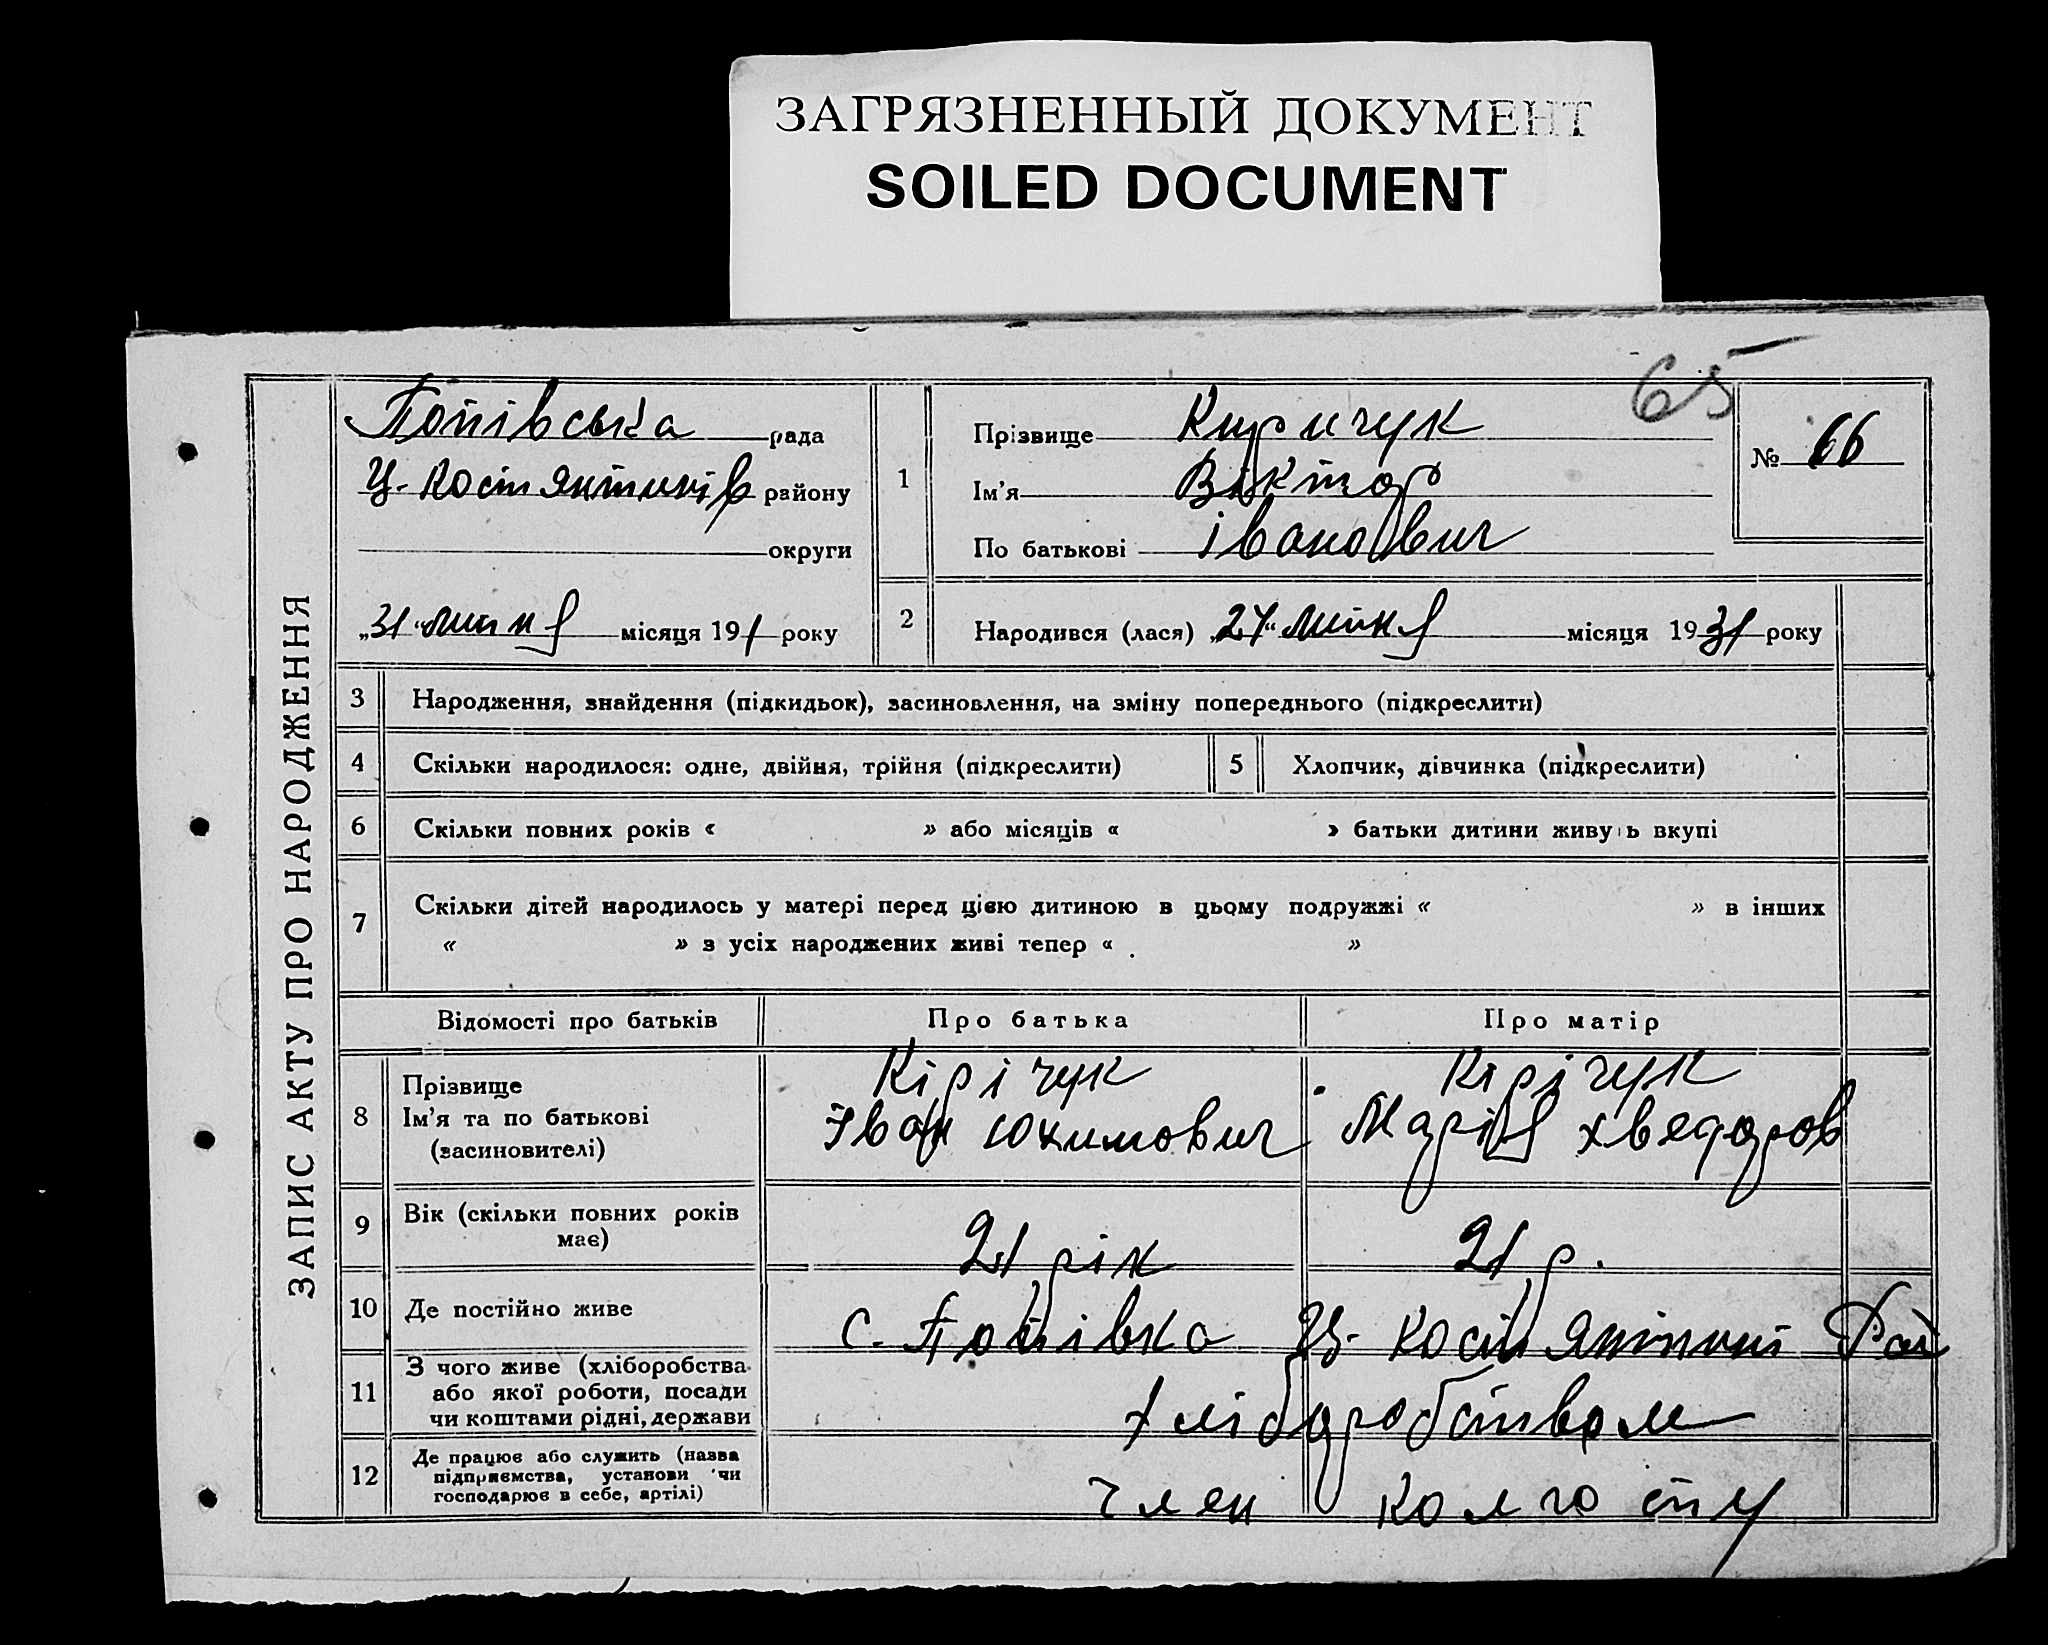 ЗАГРЯЗНЕННЫЙ ДОКУМЕНТ
SOILED DOCUMENT
65
ЗАПИС АКТУ ПРО НАРОДЖЕННЯ
Попівська рада
Ц. Костянтинів району
округи
„31“ липня місяця 191 року
1
Прізвище Киричук
Ім'я Віктор
По батькові іванович
№ 66
2
Народився (лася) „27“ липня місяця 1931 року
3 Народження, знайдення (підкидьок), засиновлення, на зміну попереднього (підкреслити)
4 Скільки народилося: одне, двійня, трійня (підкреслити) 5 Хлопчик, дівчинка (підкреслити)
6 Скільки повних років « » або місяців « » батьки дитини живу ь вкупі
7 Скільки дітей народилось у матері перед цією дитиною в цьому подружжі « » в інших
« » з усіх народжених живі тепер « »
Відомості про батьків Про батька Про матір
8 Прізвище Кірічук Кірічук
Ім'я та по батькові Іван юхимович Марія хведоров
(засиновителі)
9 Вік (скільки повних років має) 21 рік 21 р.
10 Де постійно живе с. Попівка Ц. Костянтині Рай
11 З чого живе (хліборобства
або якої роботи, посади
чи коштами рідні, держави хліборобством
12 Де працює або служить (назва
підприємства, установи чи
господарює в себе, артілі) член колгоспу